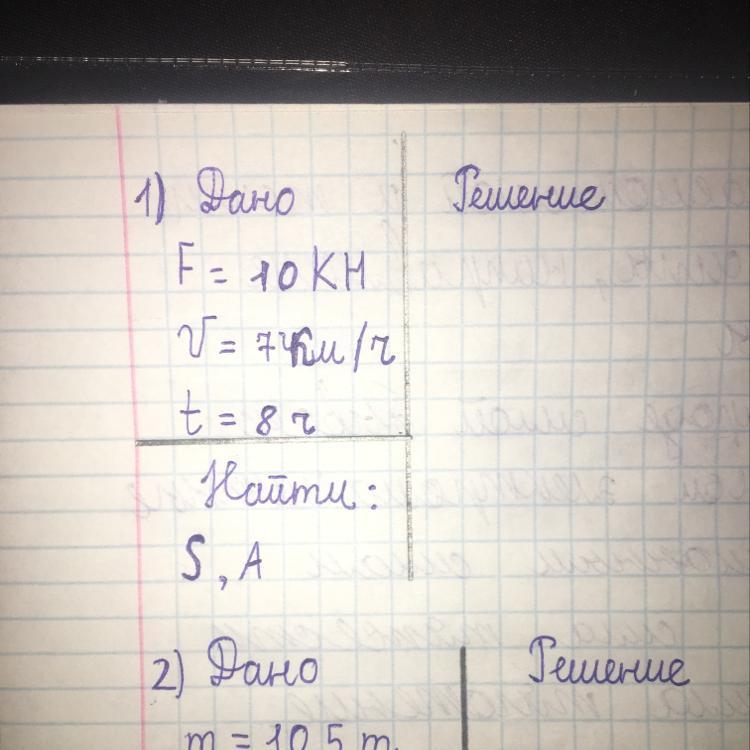 1) Дано Решение
F = 10 КН
V = 7 км/ч
t = 8 ч
Найти:
S, A
2) Дано Решение
m = 10,5 т